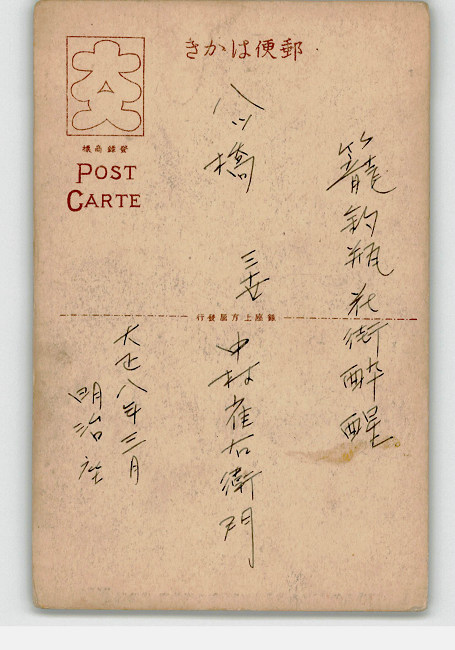 郵便はかき
籠釣瓶花街酔醒
八ツ橋
三世 中村雀右衛門
大正八年三月
明治座
標商錄登
POST
CARTE
行發屋方上座銀